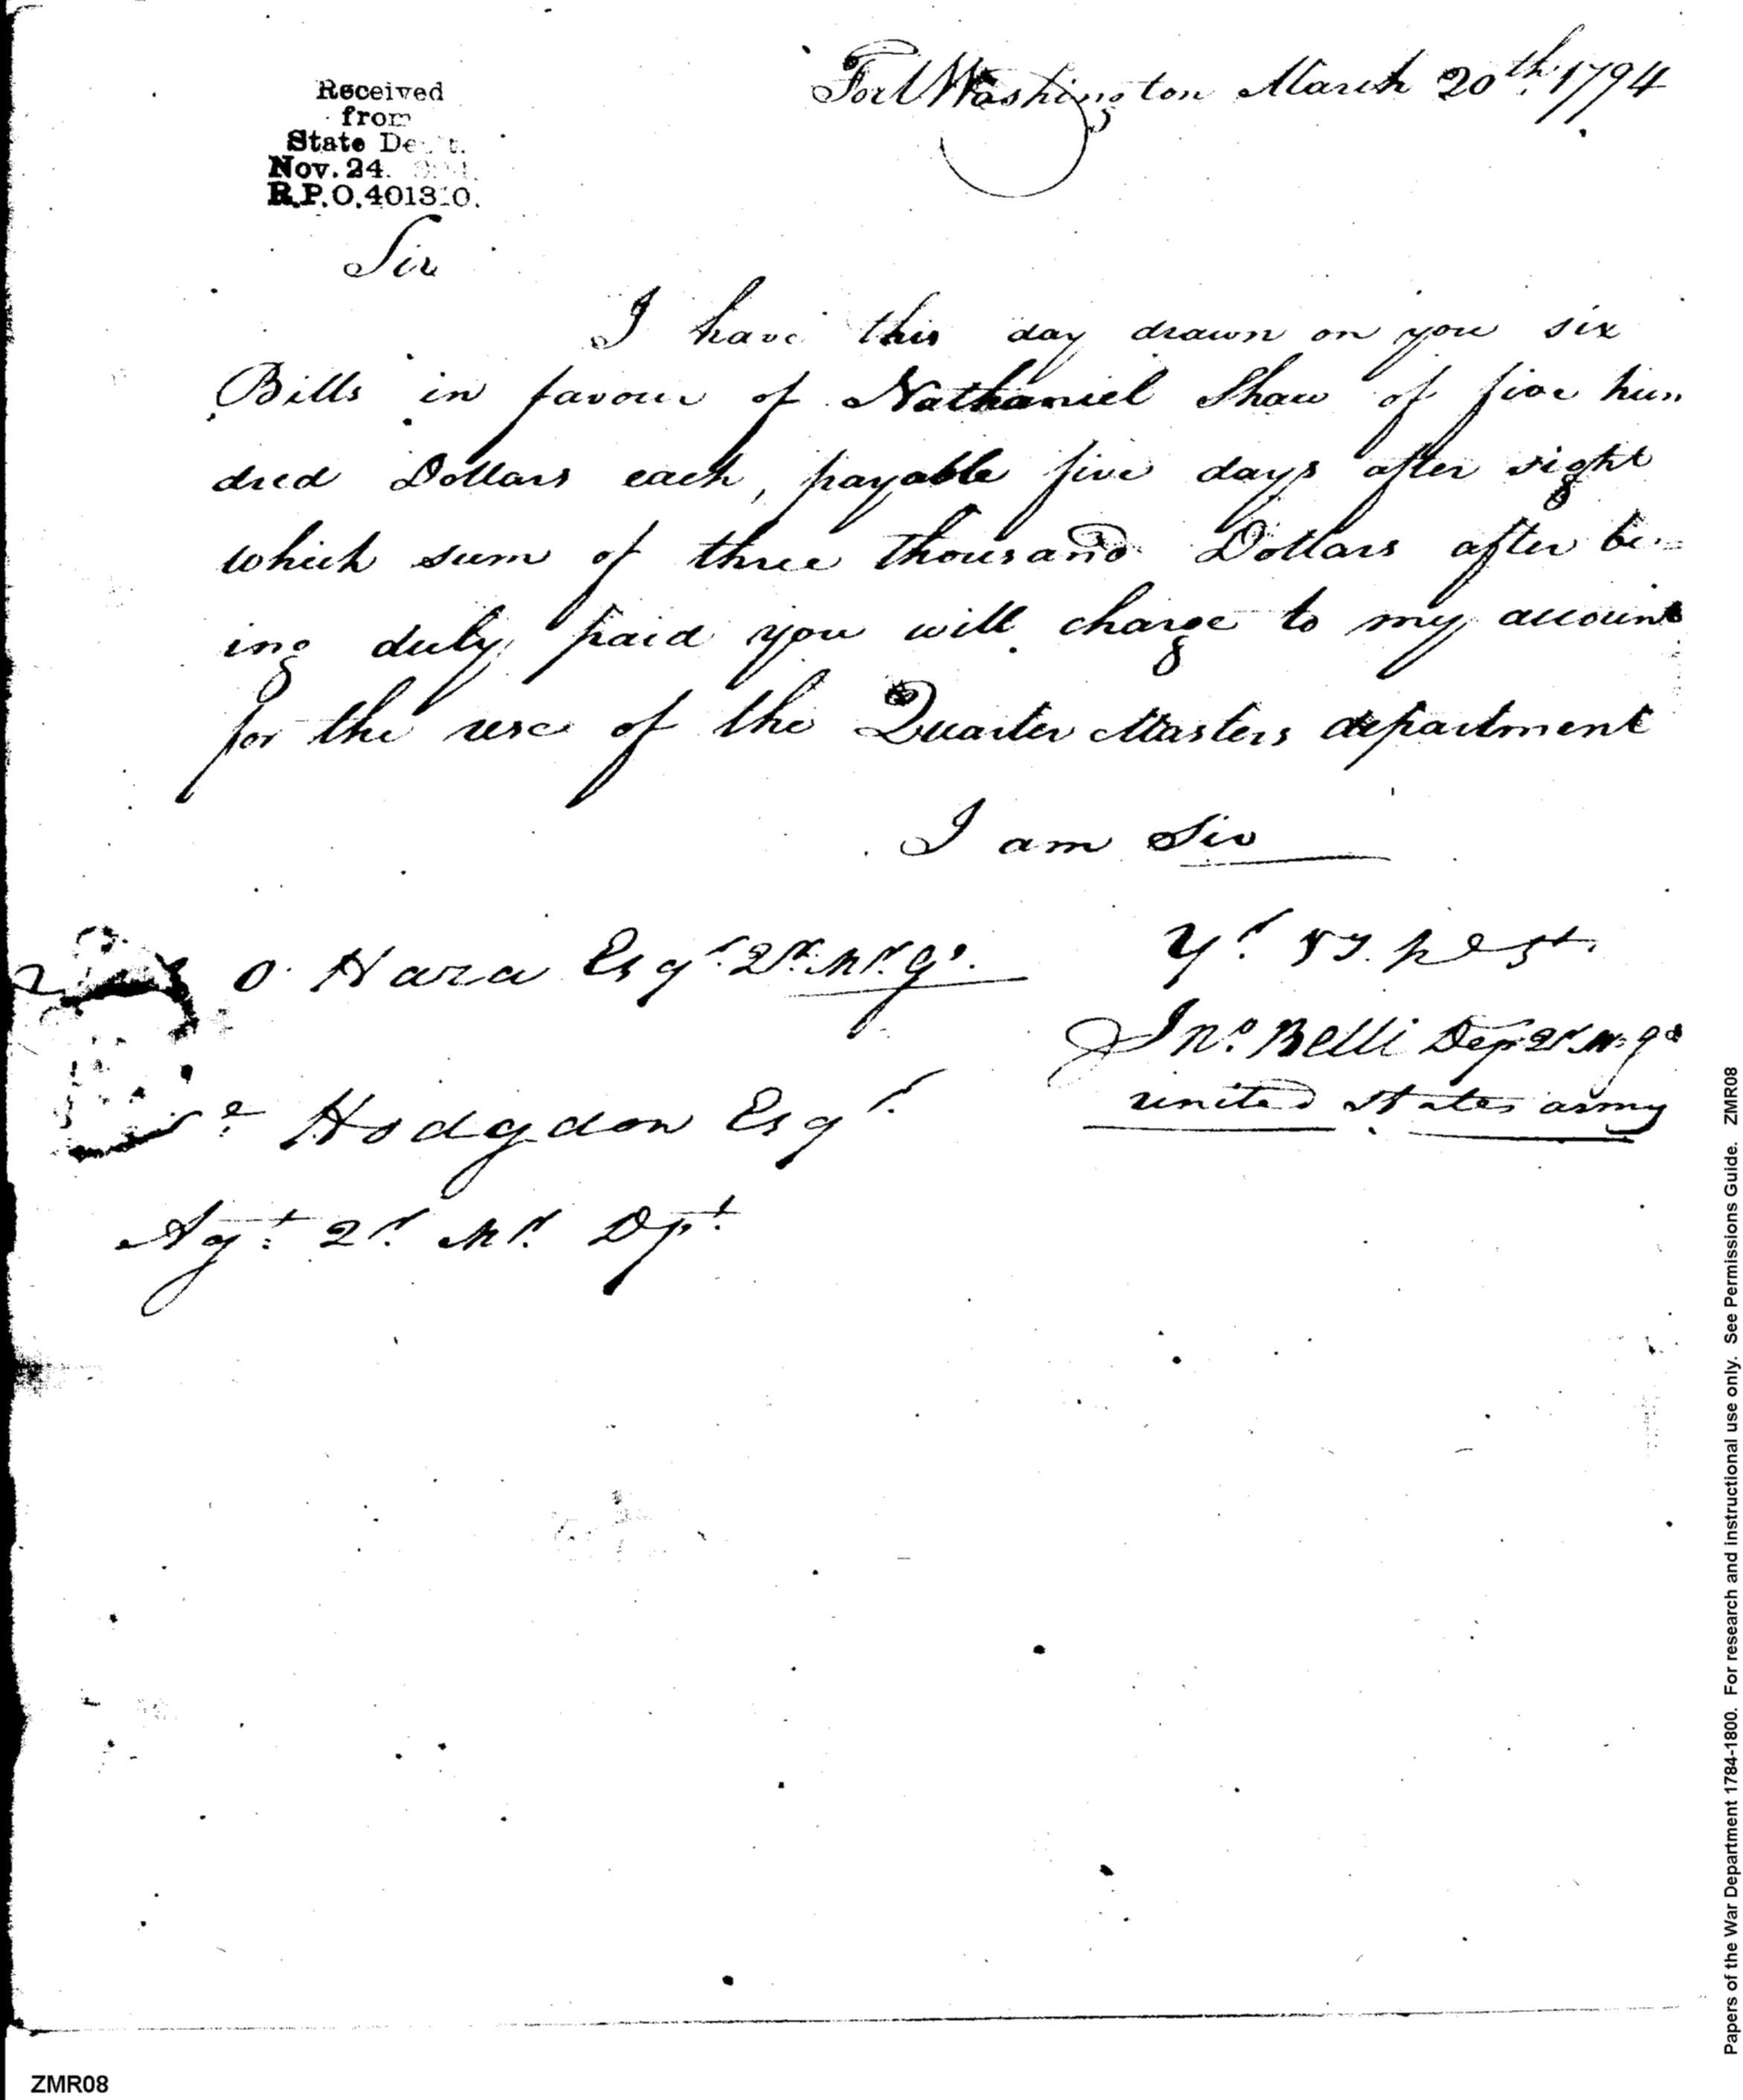 Received
from
State De t.
Nov. 24.
R.P.O. 4013 0.
Fort Washington March 20th. 1794
Sir
I have this day drawn on you six
Bills in favour of Nathaniel Shaw of five hun
dred Dollars each, payable five days after sight
which sum of three thousand Dollars after be=
ing duly paid you will charge to my account
for the use of the Quarter Masters department
I am Sir
O Hara Esqr. Qr. Mr. Gl.
Yr.
Jno. Belli Dep Qr. Mr. Gl
united States army
Hodgdon Esqr.
Agt. Qr. Mr. Dpt.
Papers of the War Department 1784-1800. For research and instructional use only. See Permissions Guide. ZMR08
ZMR08